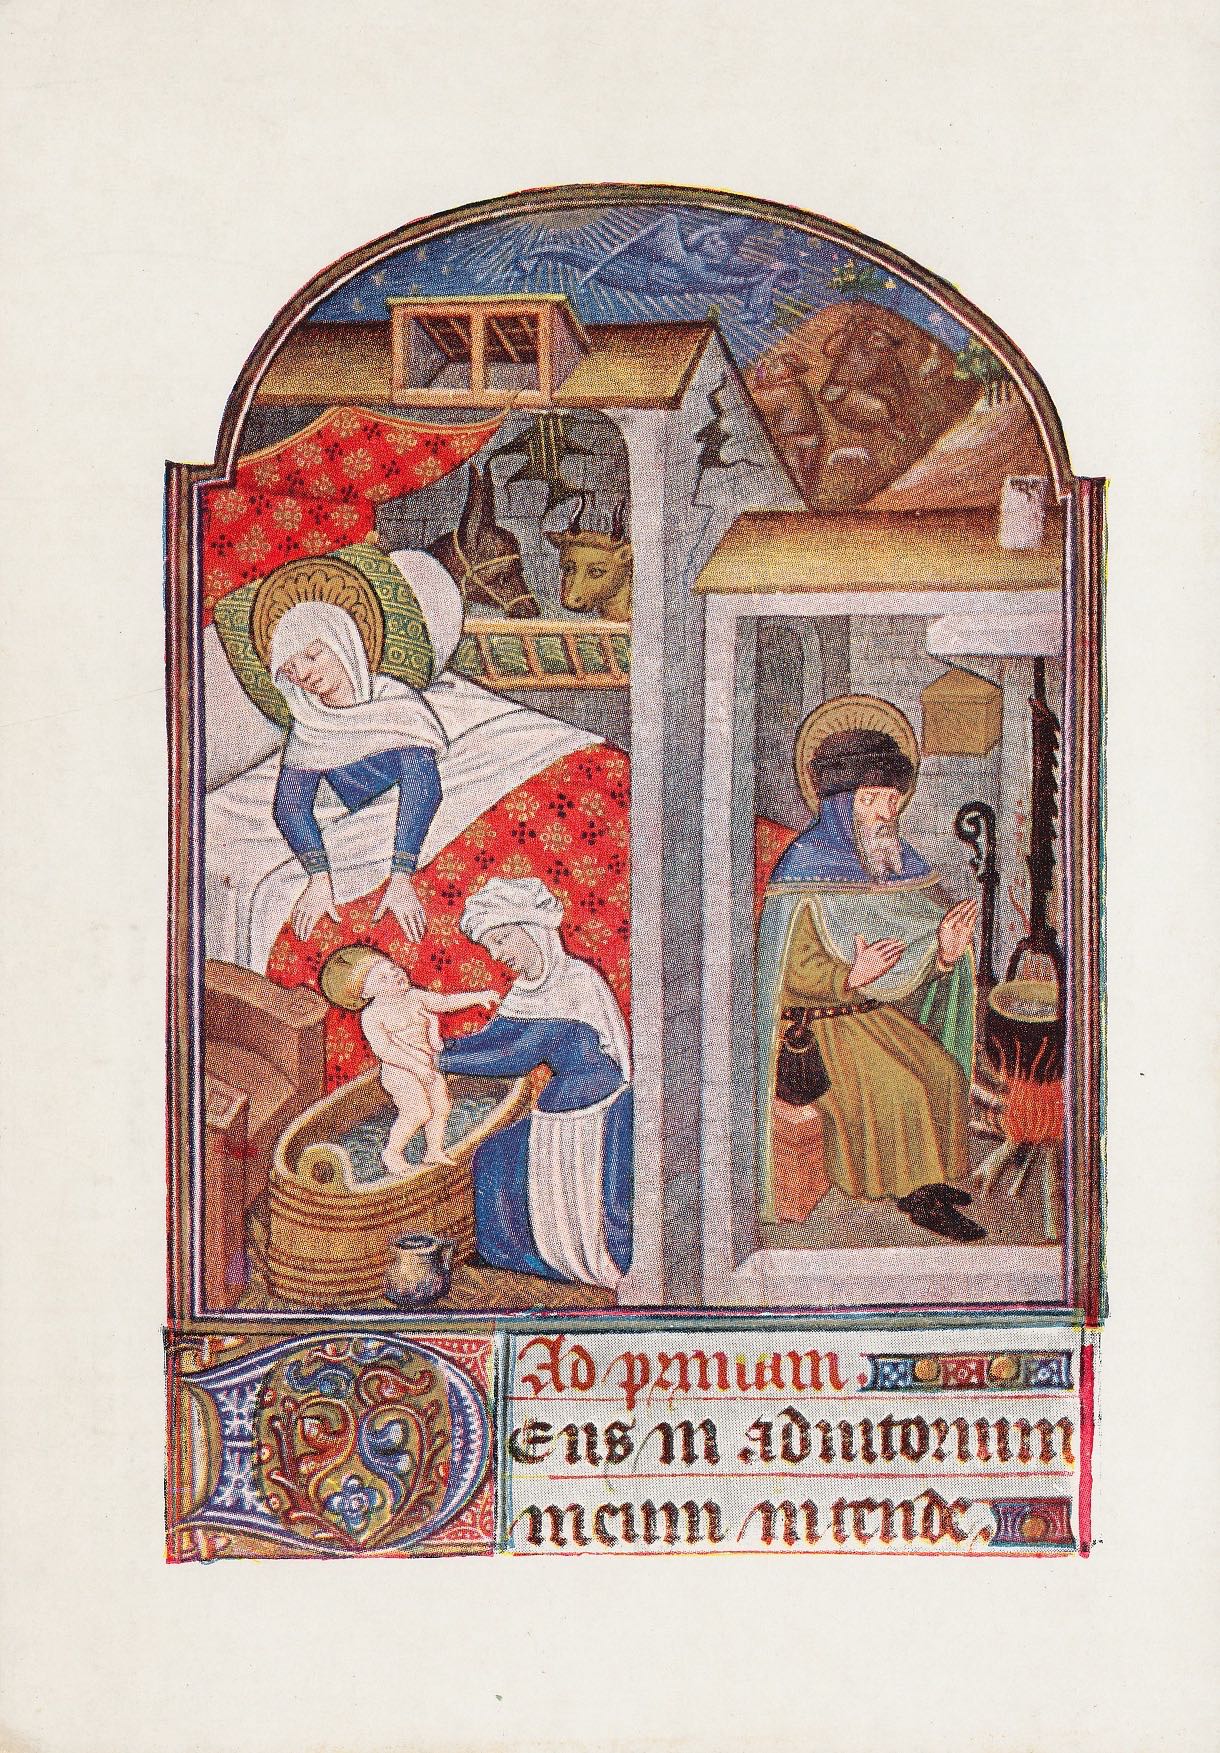 Ad primam.
Deus in adiutorium
meum intende.